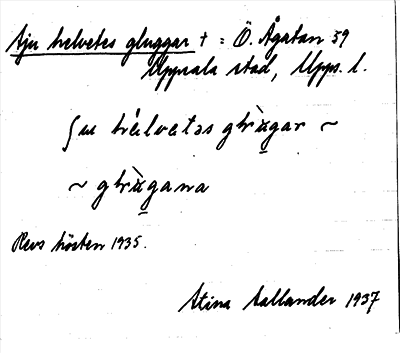 Sju helvetes gluggar † = Ö. Ågatan 59
Uppsala stad, Upps. l.
ʃu hélvetəs glùgar ~
~ glùgana
Revs hösten 1935.
Stina Sallander 1937